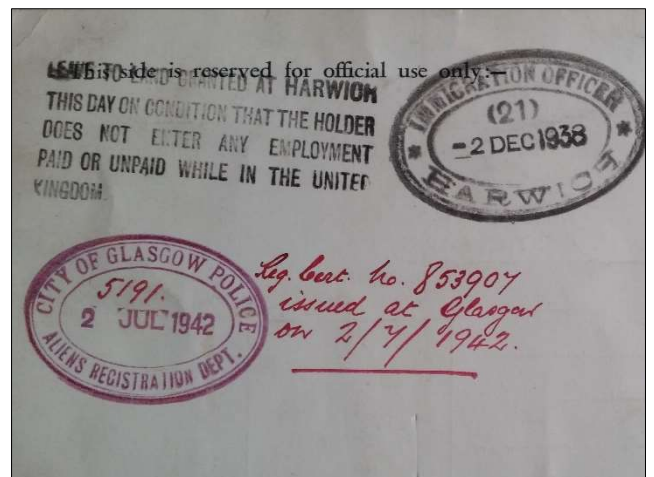 This side is reserved for official use only:—
LEAVE TO LAND GRANTED AT HARWICH
THIS DAY ON CONDITION THAT THE HOLDER
DOES NOT ENTER ANY EMPLOYMENT
PAID OR UNPAID WHILE IN THE UNITED
KINGDOM.
IMMIGRATION OFFICER
(21)
-2 DEC 1938
HARWICH
CITY OF GLASGOW POLICE
5191.
2 JUL 1942
ALIENS REGISTRATION DEPT.
Reg. Cert. No. 853907
issued at Glasgow
on 2/7/1942.